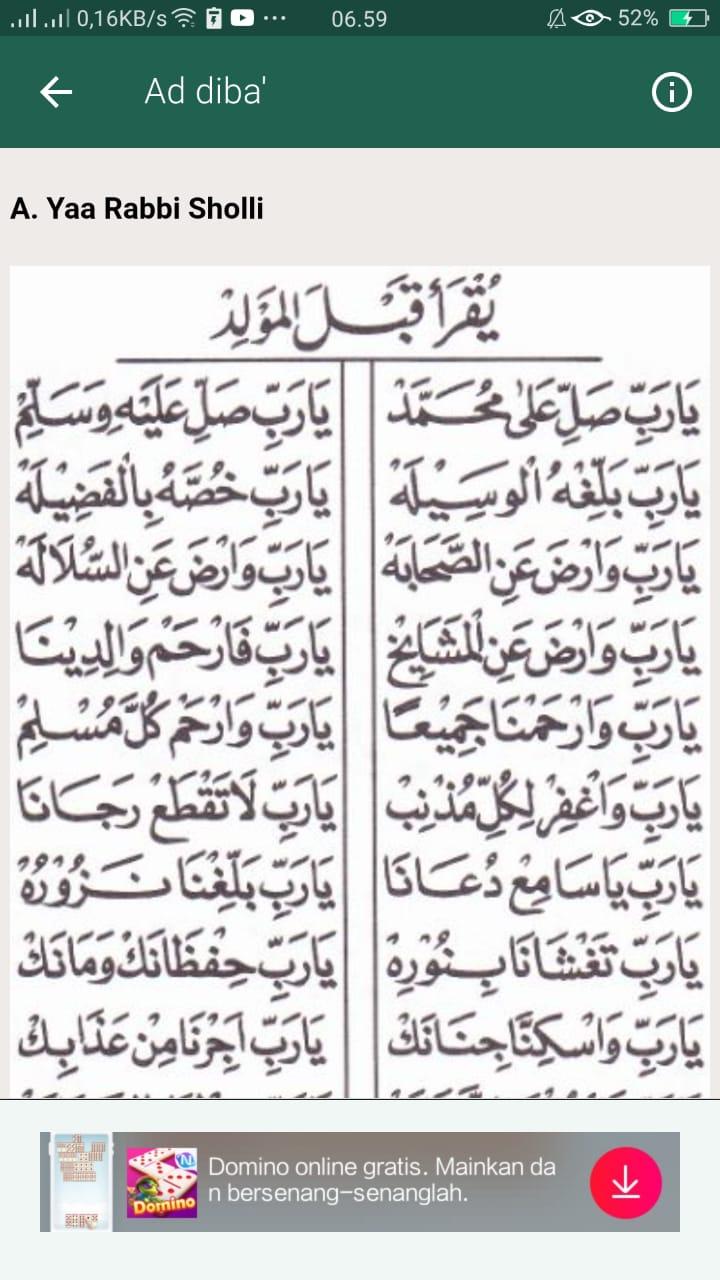 0,16KB/s ... 06.59 52%
Ad diba'
A. Yaa Rabbi Sholli
يُقْرَأُ قَبْلَ الْمَوْلِدْ
يَارَبِّ صَلِّ عَلَى مُحَمَّدْ يَارَبِّ صَلِّ عَلَيْهِ وَسَلِّمْ
يَارَبِّ بَلِّغْهُ الْوَسِيْلَهْ يَارَبِّ خُصَّهُ بِالْفَضِيْلَهْ
يَارَبِّ وَارْضَ عَنِ الصَّحَابَهْ يَارَبِّ وَارْضَ عَنِ السُّلَالَهْ
يَارَبِّ وَارْضَ عَنِ الْمَشَايِخْ يَارَبِّ فَارْحَمْ وَالِدِيْنَا
يَارَبِّ وَارْحَمْنَا جَمِيْعًا يَارَبِّ وَارْحَمْ كُلَّ مُسْلِمْ
يَارَبِّ وَاغْفِرْ لِكُلِّ مُذْنِبْ يَارَبِّ لَا تَقْطَعْ رَجَانَا
يَارَبِّ يَا سَامِعْ دُعَانَا يَارَبِّ بَلِّغْنَا نَزُوْرُهْ
يَارَبِّ تَغْشَانَا بِنُوْرِهْ يَارَبِّ حِفْظَانَكْ وَمَانَكْ
يَارَبِّ وَاسْكِنَّا جِنَانَكْ يَارَبِّ اَجِرْنَا مِنْ عَذَابِكْ
Domino online gratis. Mainkan da
n bersenang-senanglah.
Domino